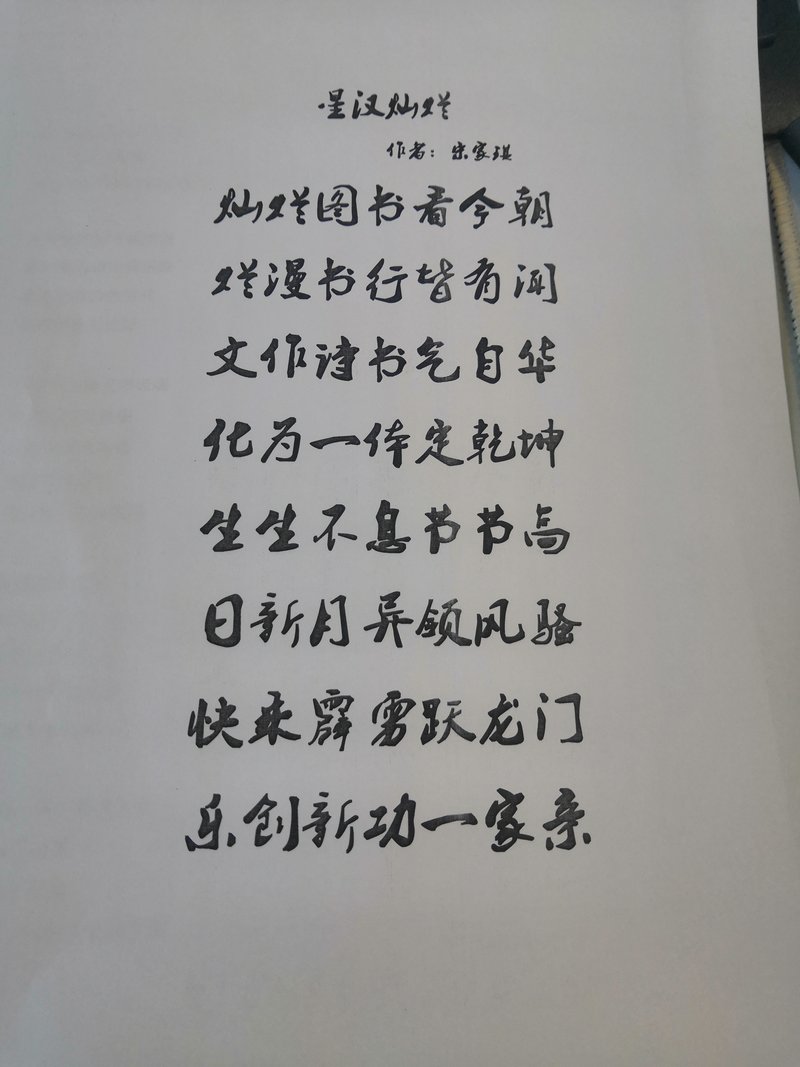 星汉灿烂
作者：宋家琪
灿烂图书看今朝
烂漫书行皆有闻
文作诗书气自华
化为一体定乾坤
生生不息节节高
日新月异领风骚
快乘霹雳跃龙门
乐创新功一家亲